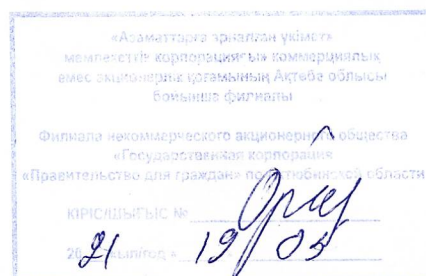 «Азаматтарға арналған үкімет»
мемлекеттік корпорациясы» коммерциялық
емес акционерлік қоғамының Ақтөбе облысы
бойынша филиалы
Филиала некоммерческого акционерного общества
«Государственная корпорация
«Правительство для граждан» по Актюбинской области
КІРІС/ШЫҒЫС №
20 21 жыл/год « 19 05